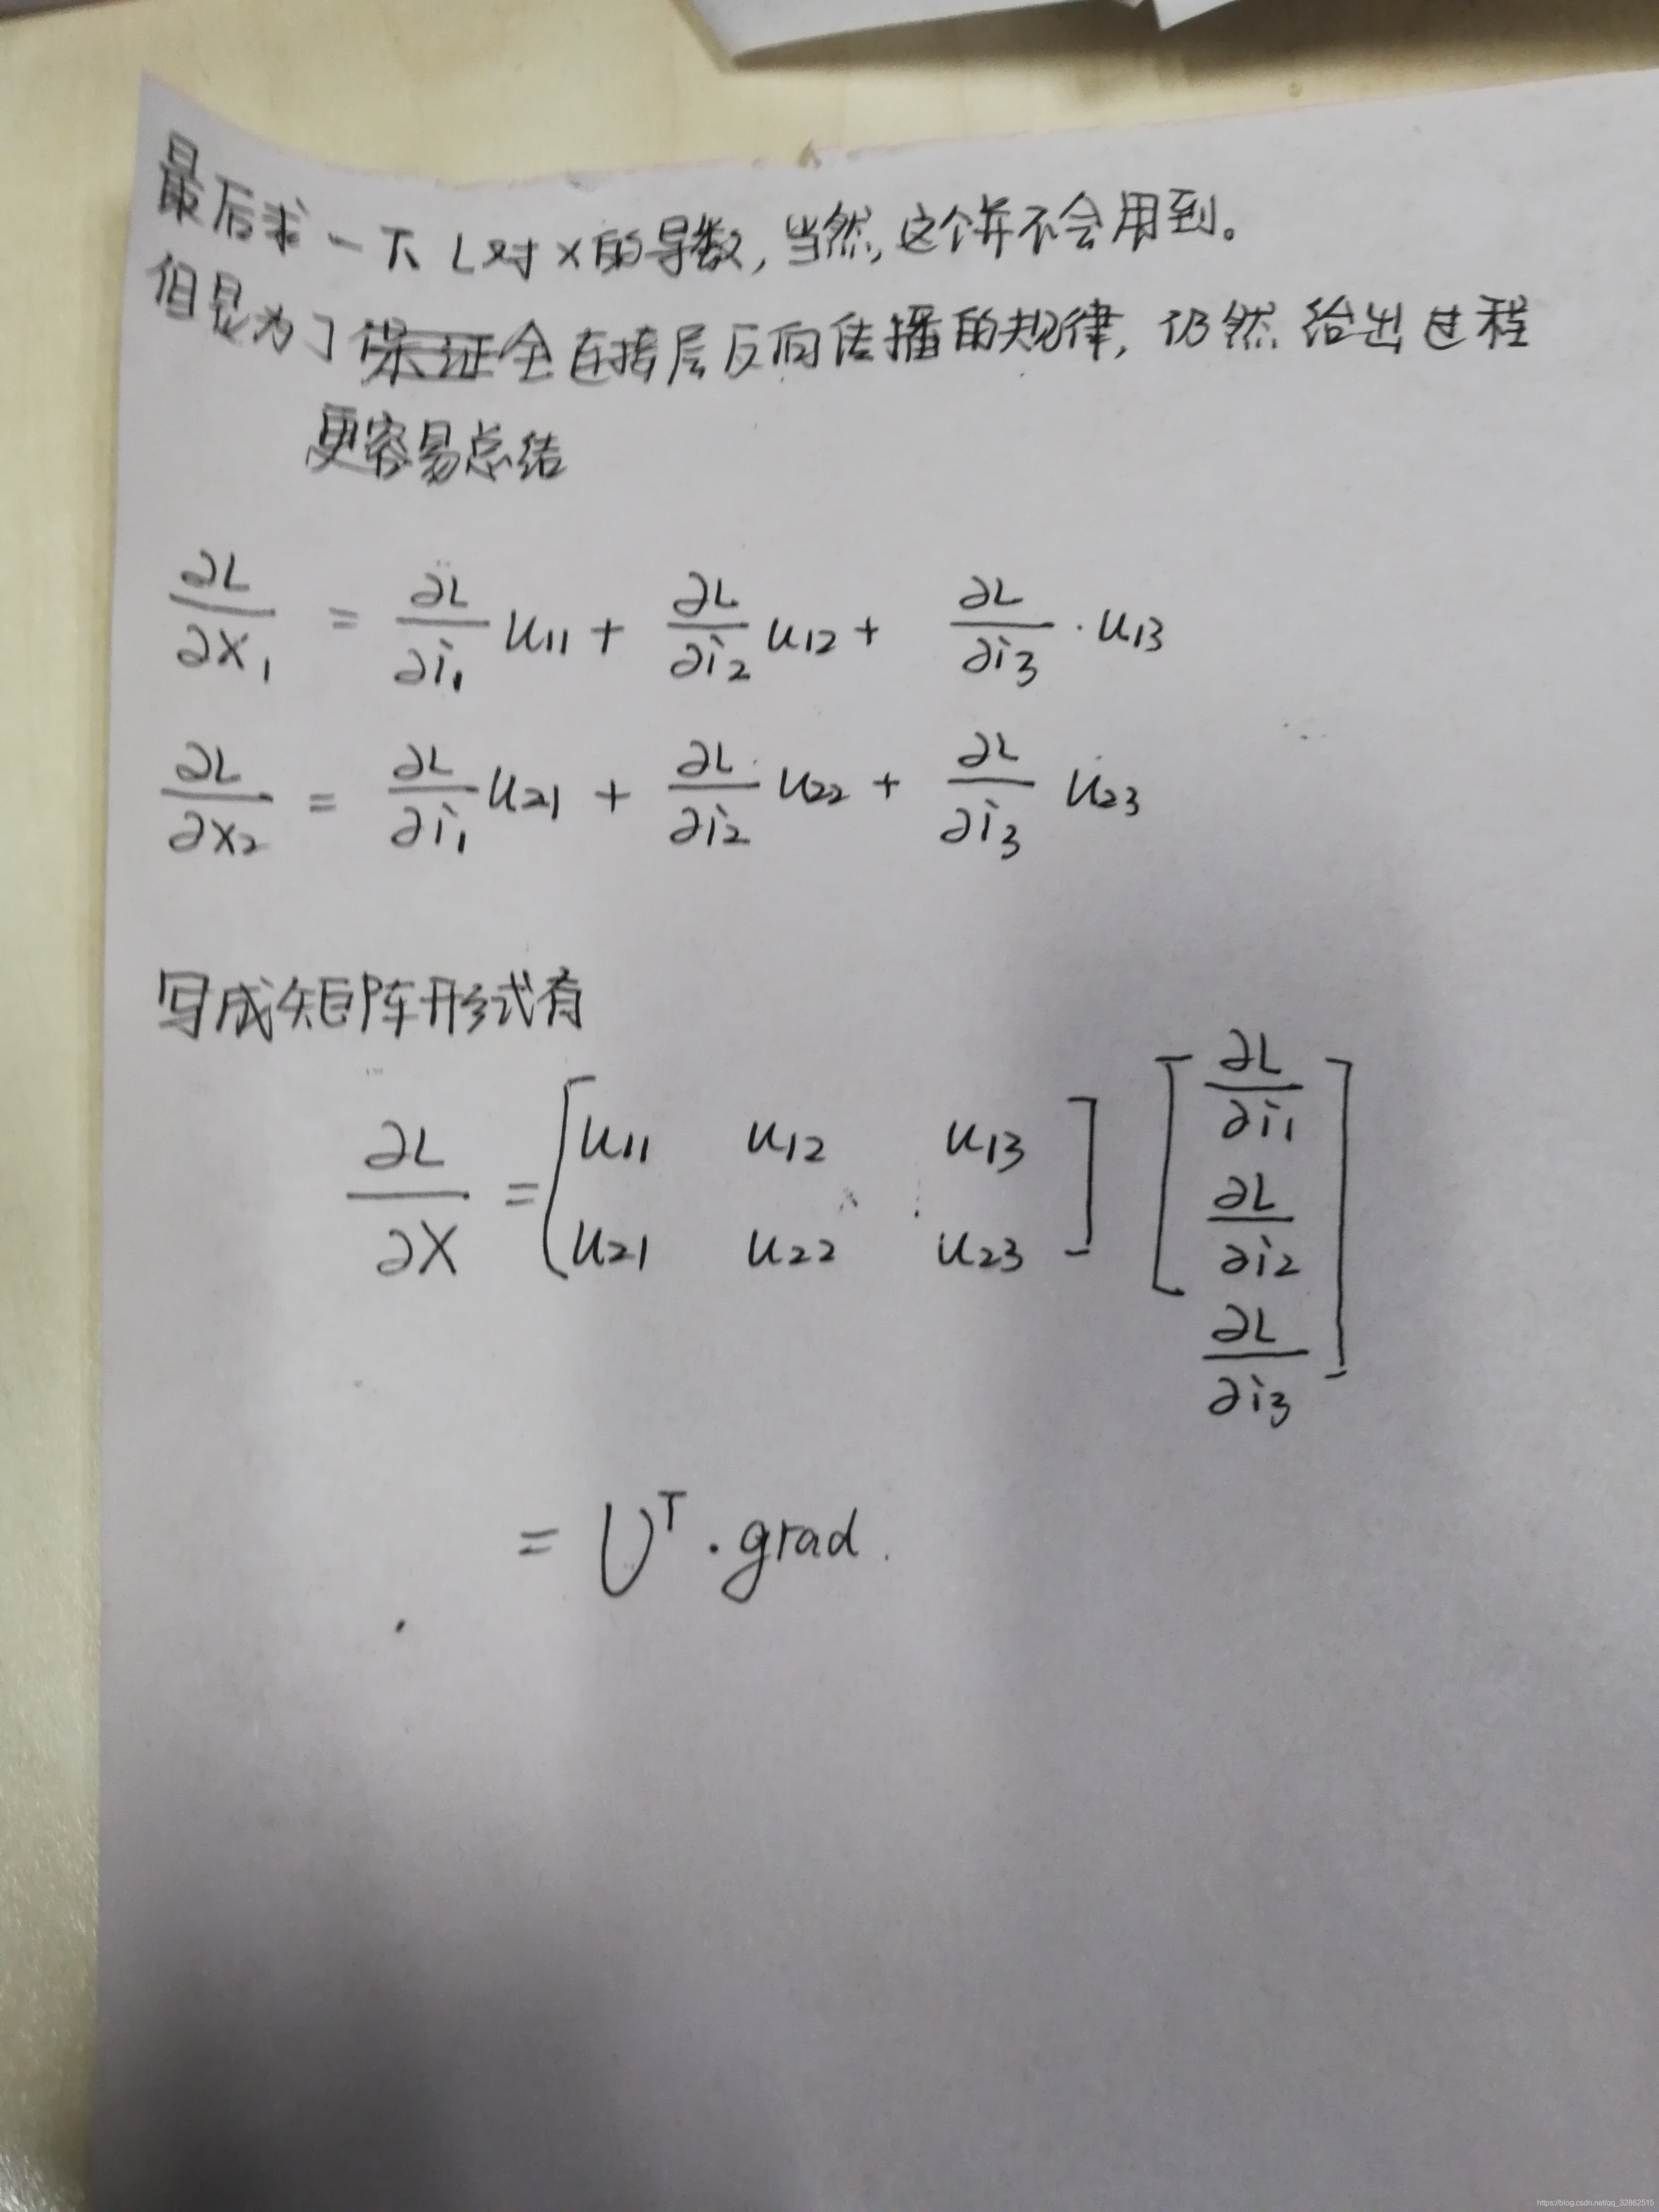 最后求一下 L对x的导数, 当然, 这个并不会用到。
但是为了保证全连接层反向传播的规律, 仍然给出过程
更容易总结
∂L/∂X₁ = ∂L/∂i₁ u₁₁ + ∂L/∂i₂ u₁₂ + ∂L/∂i₃ · u₁₃
∂L/∂x₂ = ∂L/∂i₁ u₂₁ + ∂L/∂i₂ u₂₂ + ∂L/∂i₃ u₂₃
写成矩阵形式有
∂L/∂X = [u₁₁ u₁₂ u₁₃; u₂₁ u₂₂ u₂₃] [∂L/∂i₁; ∂L/∂i₂; ∂L/∂i₃]
= Uᵀ · grad.
https://blog.csdn.net/qq_32862515